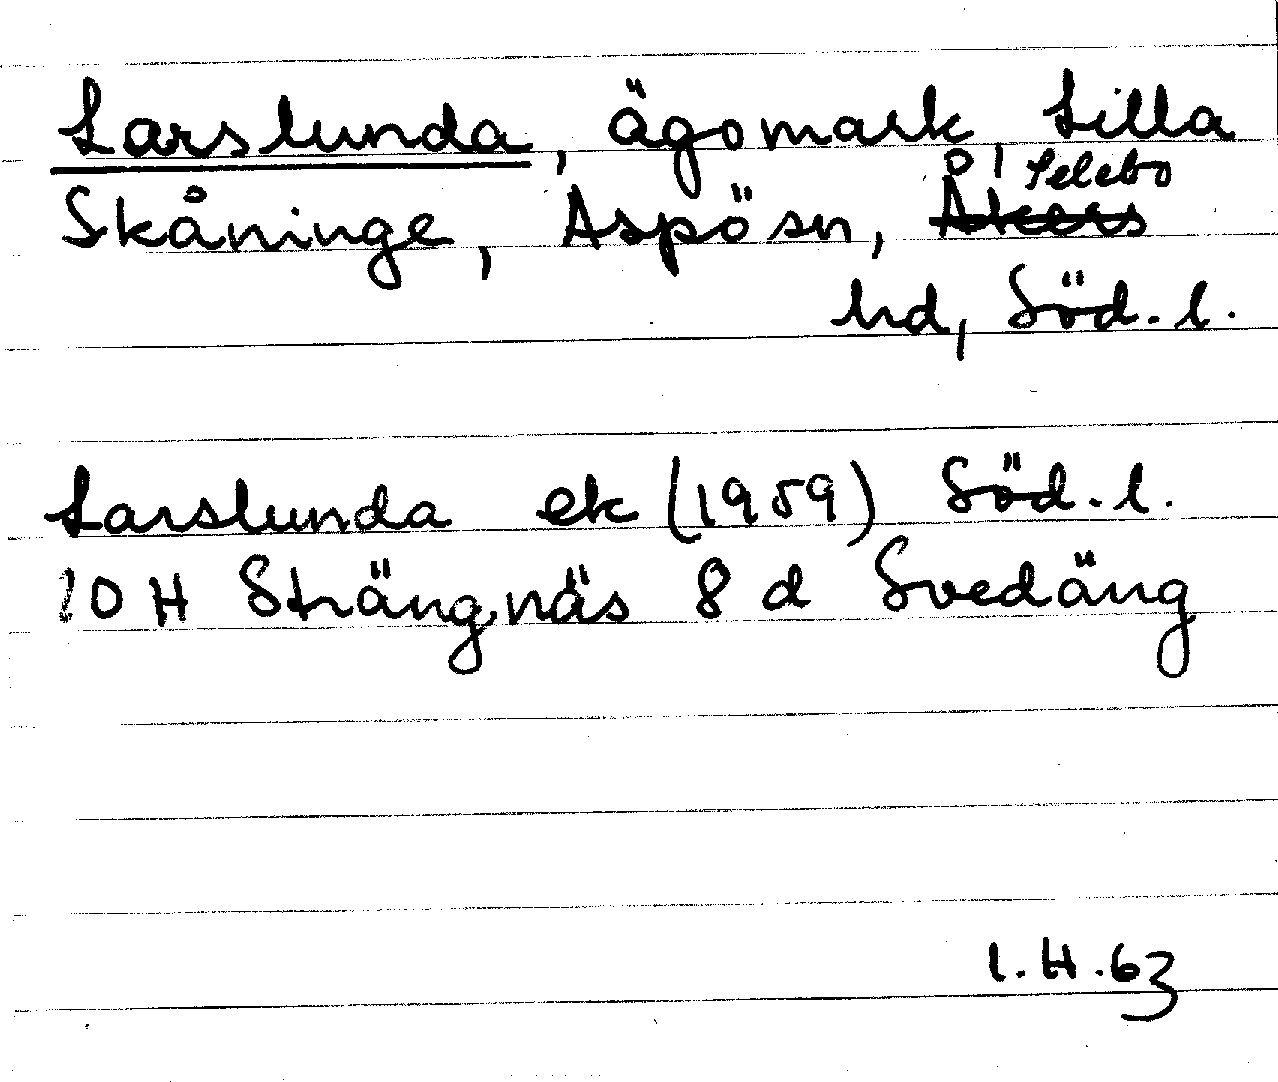 Larslunda, ägomark, Lilla
Skåninge, Aspö sn, Selebo Åkers
hd, Söd. l.
Larslunda ek (1959) Söd. l.
10 H Strängnäs 8 d Svedäng
I. H. 63